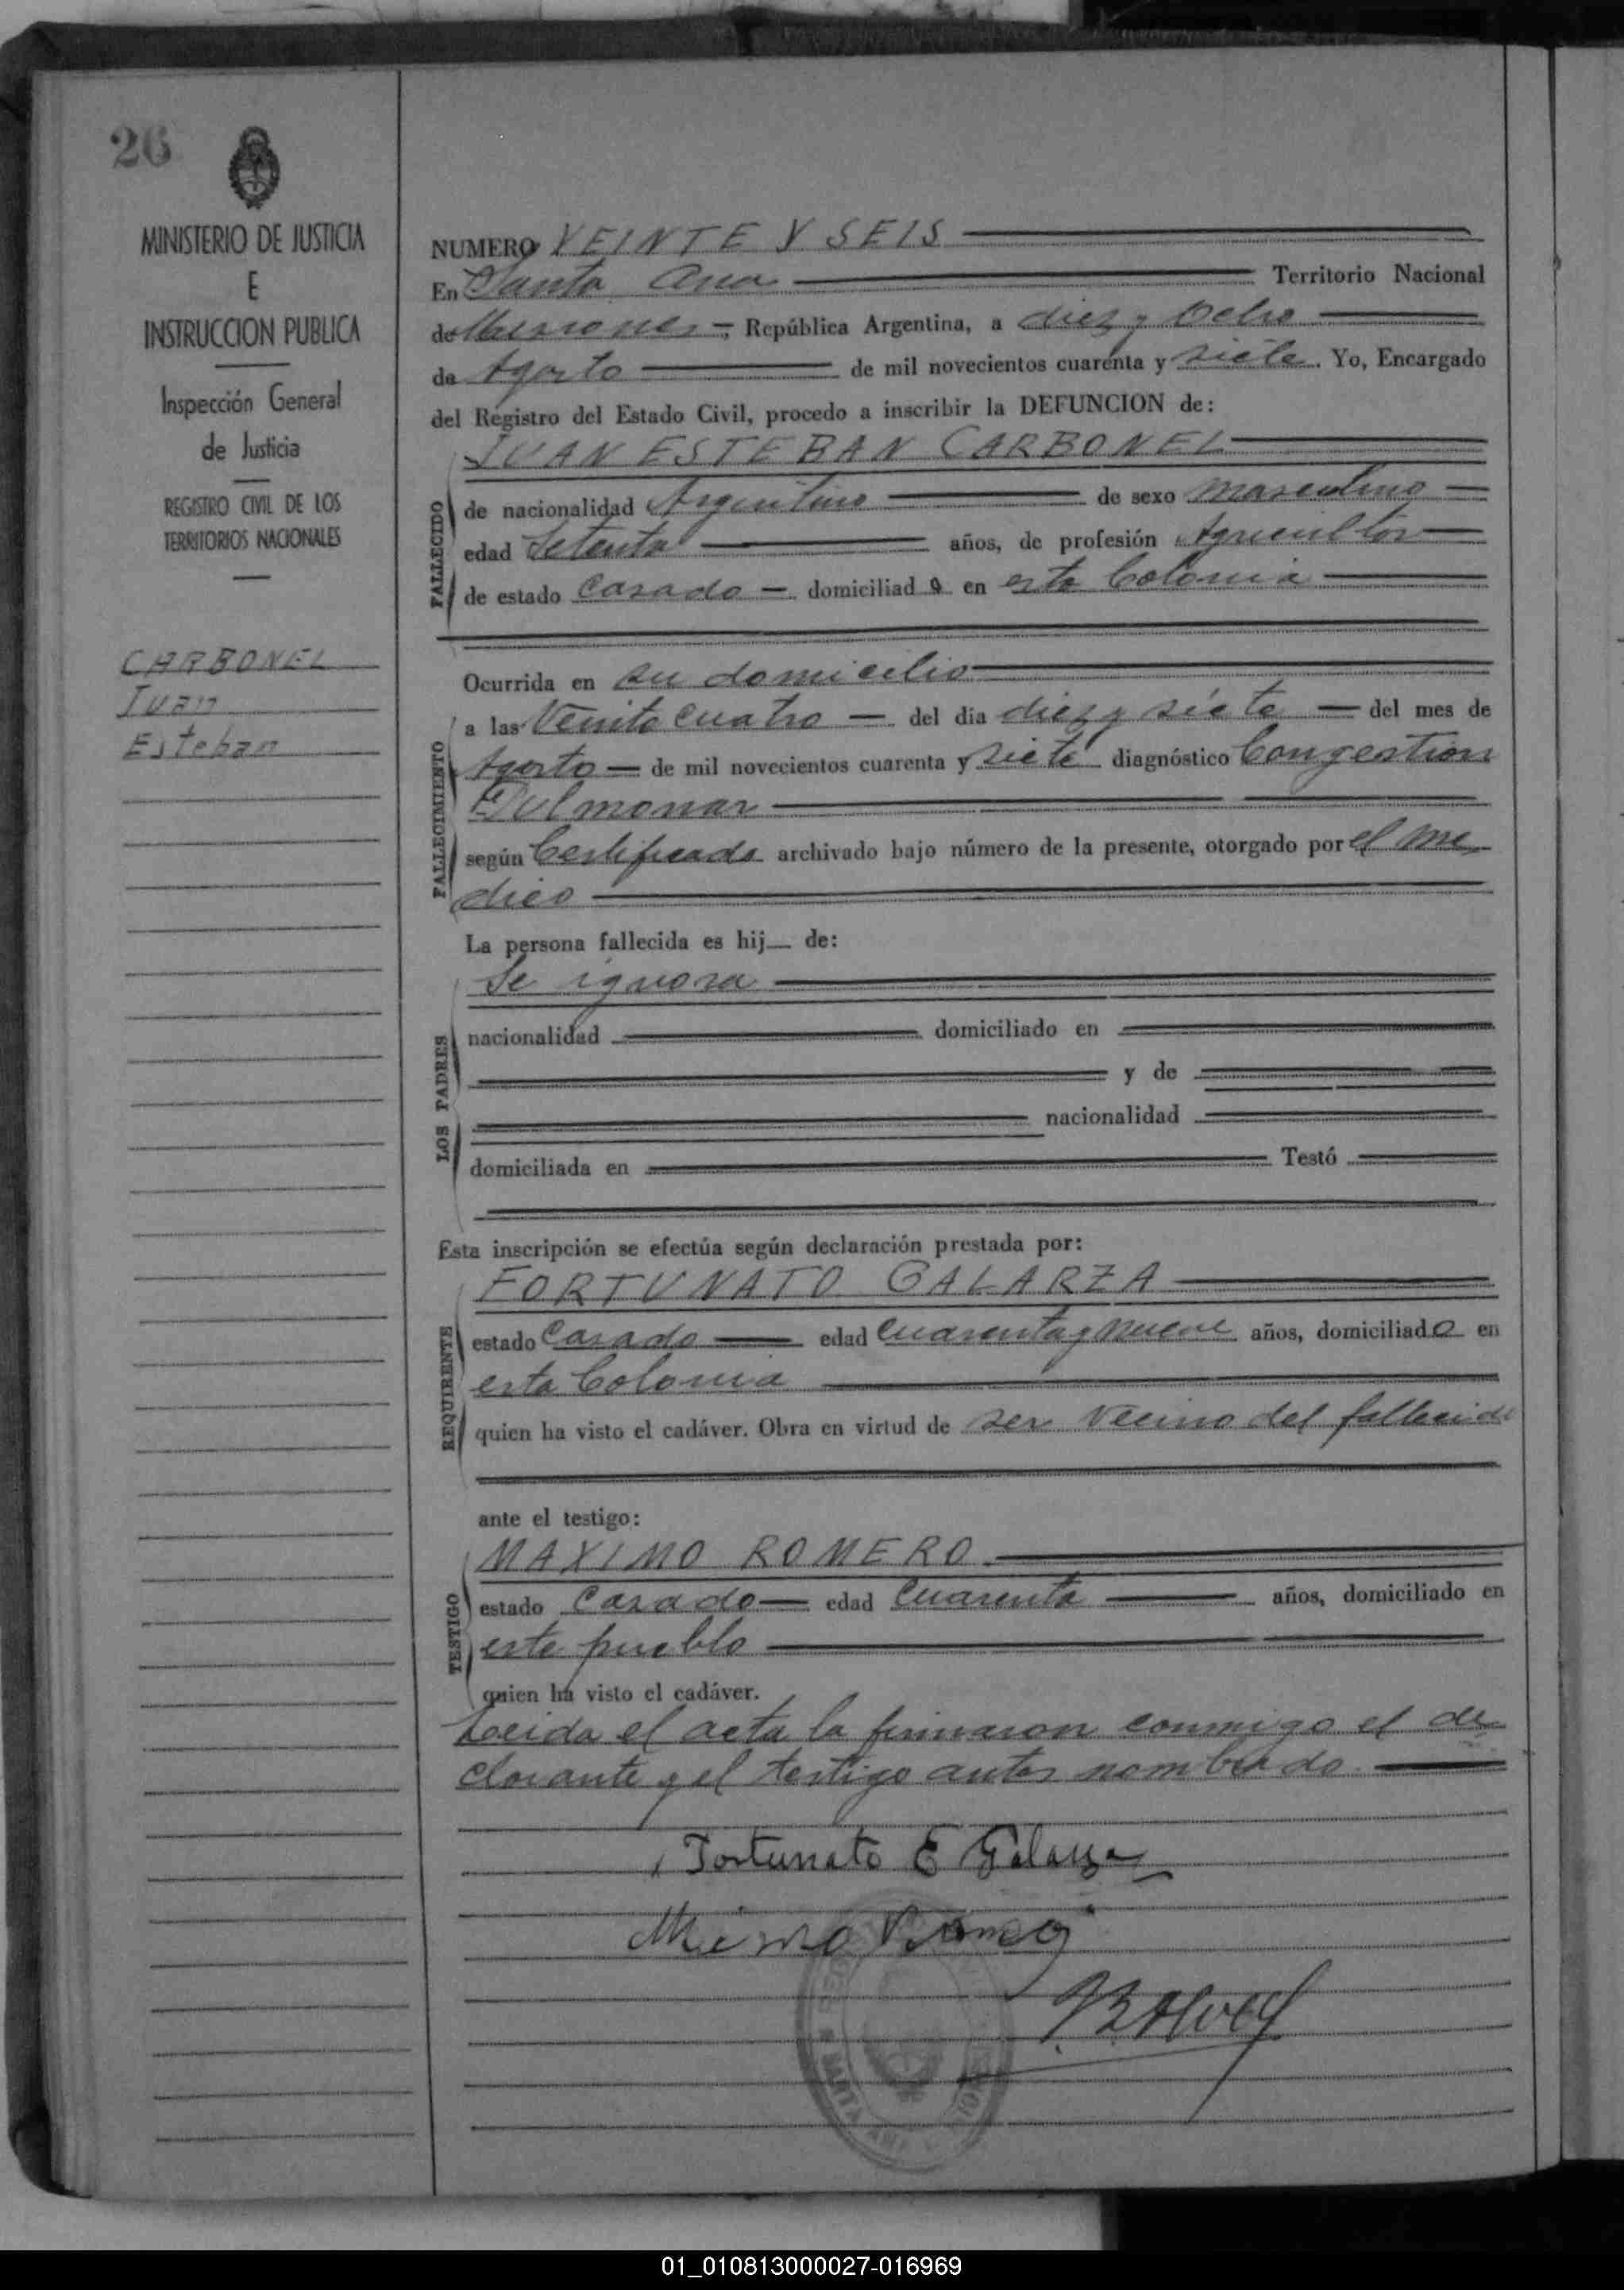 26
MINISTERIO DE JUSTICIA
E
INSTRUCCION PUBLICA
Inspección General
de Justicia
REGISTRO CIVIL DE LOS
TERRITORIOS NACIONALES
CARBONEL
Juan
Esteban
NUMERO VEINTE Y SEIS
En Santa Ana Territorio Nacional
de Misiones República Argentina, a diez y ocho
de Agosto de mil novecientos cuarenta y siete. Yo, Encargado
del Registro del Estado Civil, procedo a inscribir la DEFUNCION de:
JUAN ESTEBAN CARBONEL
FALLECIDO
de nacionalidad Argentino de sexo masculino
edad Setenta años, de profesión Agricultor
de estado Casado domiciliado en esta Colonia
Ocurrida en su domicilio
FALLECIMIENTO
a las Veinte cuatro del día diez y siete del mes de
Agosto de mil novecientos cuarenta y siete diagnóstico Congestion
Pulmonar
según Certificado archivado bajo número de la presente, otorgado por el me
dico
La persona fallecida es hij de:
LOS PADRES
Se ignora
nacionalidad domiciliado en
y de
nacionalidad
domiciliada en Testó
Esta inscripción se efectúa según declaración prestada por:
REQUIRENTE
FORTUNATO GALARZA
estado Casado edad Cuarenta y nueve años, domiciliado en
esta Colonia
quien ha visto el cadáver. Obra en virtud de ser vecino del fallecido
ante el testigo:
TESTIGO
MAXIMO ROMERO
estado Casado edad Cuarenta años, domiciliado en
este pueblo
quien ha visto el cadáver.
Leida el acta la firmaron conmigo el de
clarante y el testigo antes nombrado.
Fortunato E Galarza
01_010813000027-016969